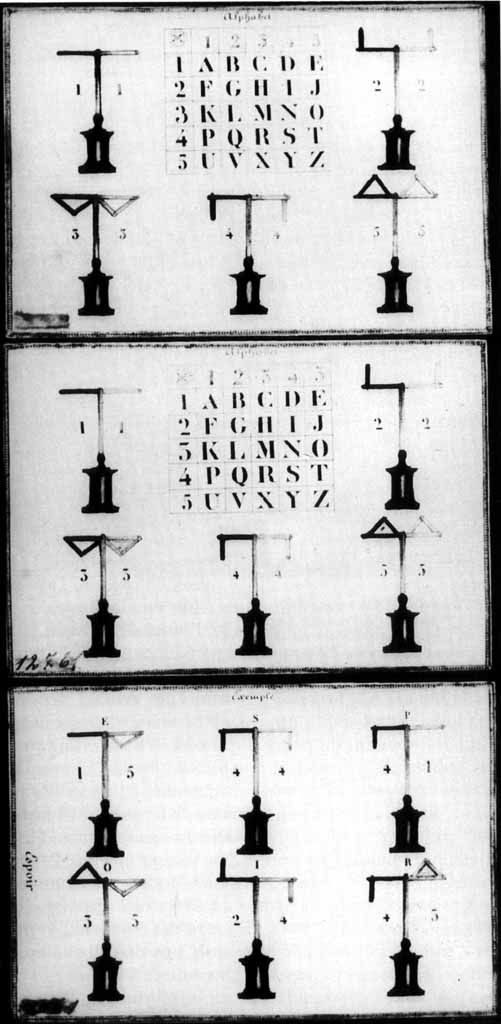 Alphabet
1 2 3 4 5
1 A B C D E
2 F G H I J
3 K L M N O
4 P Q R S T
5 U V X Y Z
1 1
2 2
3 3
4 4
5 5
Alphabet
1 2 3 4 5
1 A B C D E
2 F G H I J
3 K L M N O
4 P Q R S T
5 U V X Y Z
1 1
2 2
3 3
4 4
5 5
Exemple
E S P
1 5 4 4 4 1
Espoir
O I R
3 5 2 4 4 3